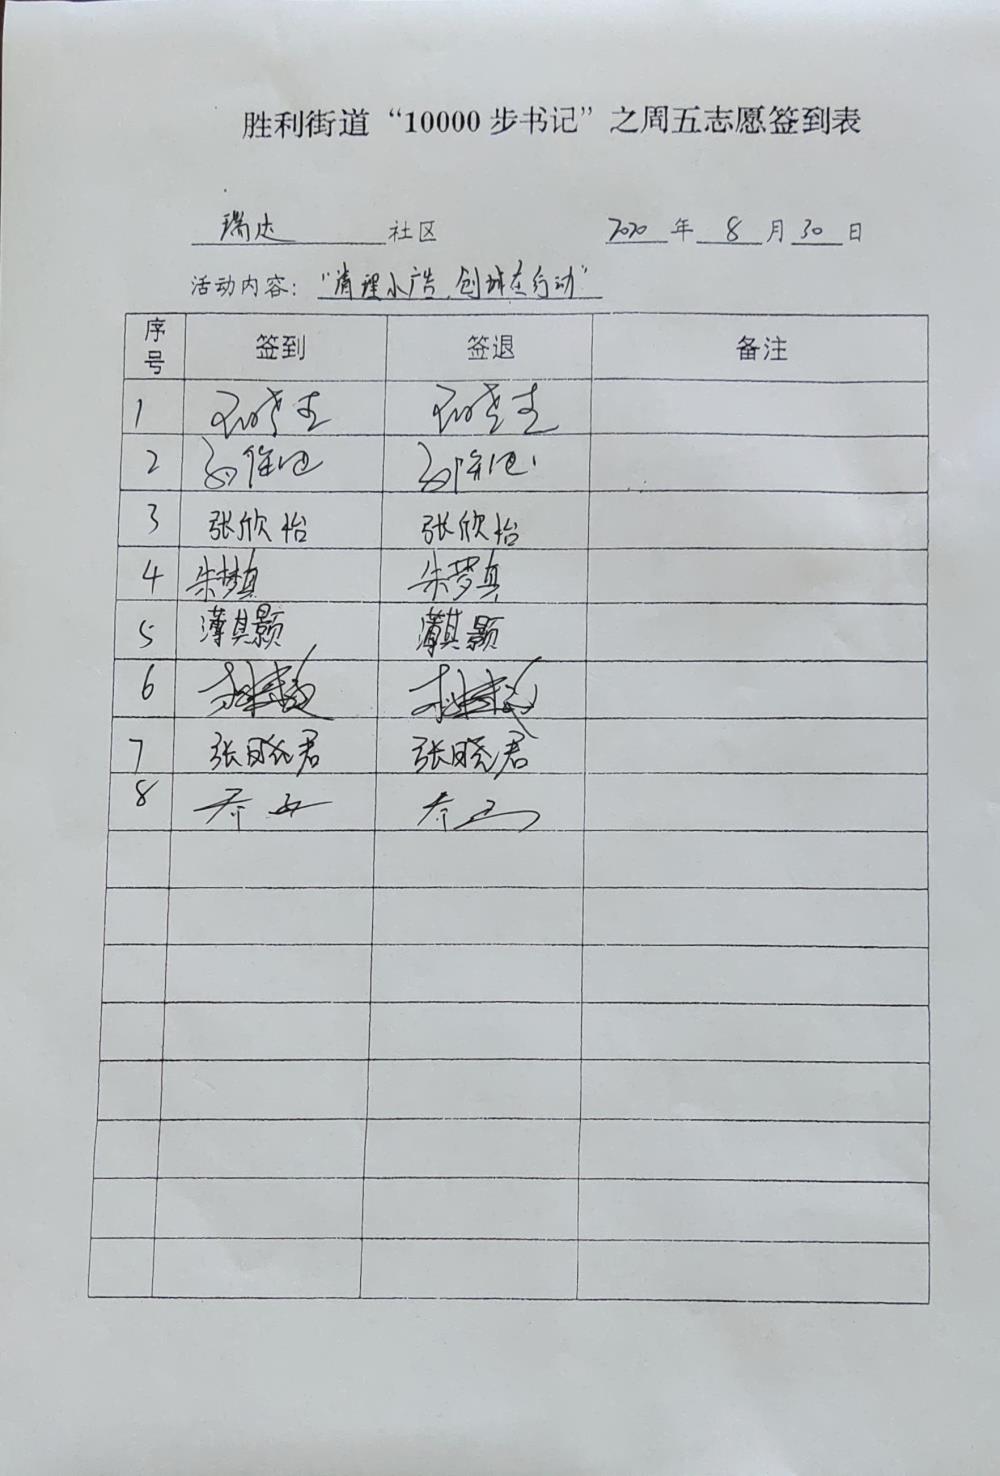 胜利街道“10000步书记”之周五志愿签到表
瑞达社区 2020年8月30日
活动内容：“清理小广告，创城在行动”
序号 签到 签退 备注
1
2
3 张欣怡 张欣怡
4 朱梦真 朱梦真
5 薄其颢 薄其颢
6
7 张晓君 张晓君
8